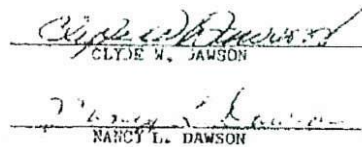 Clyde W. Dawson
CLYDE W. DAWSON
Nancy L. Dawson
NANCY L. DAWSON